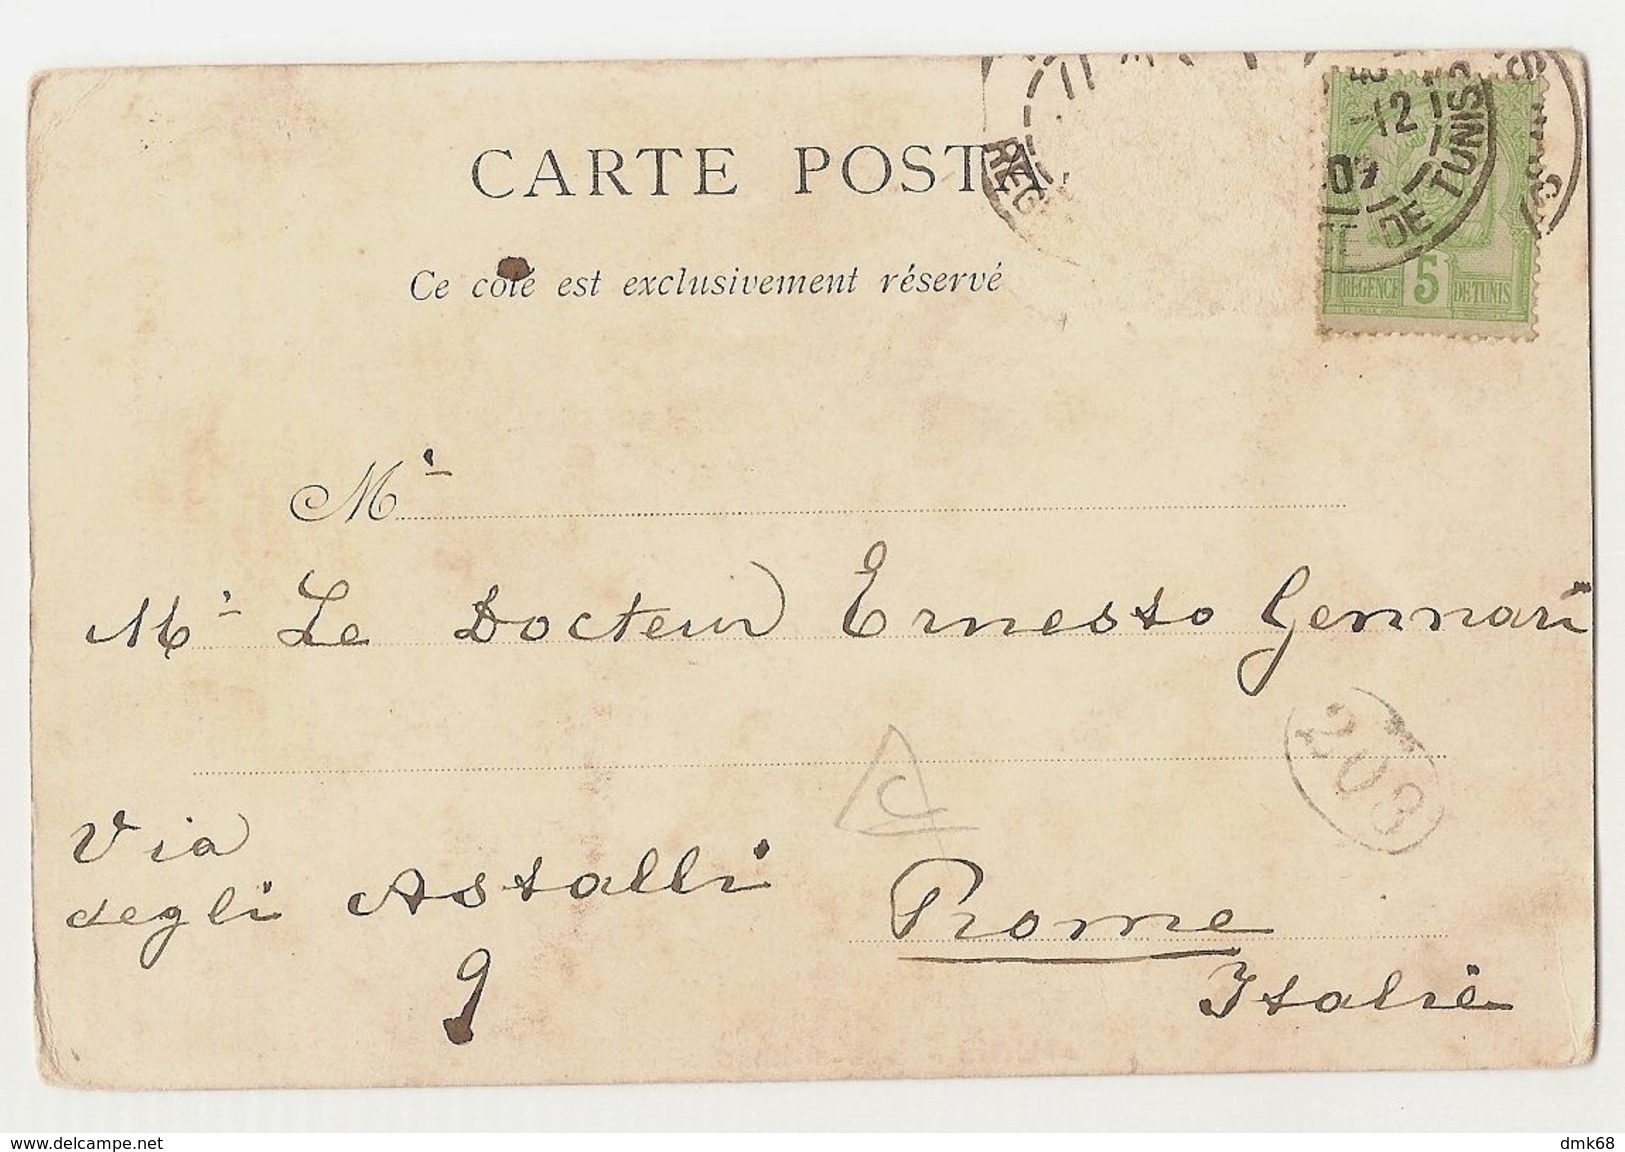 CARTE POSTA
Ce coté est exclusivement réservé
-12
RÉGENCE 5 DE TUNIS
DE TUNIS
M
Mr Le Docteur Ernesto Gennari
203
C
Via
degli Astalli
9
Rome
Italie
www.delcampe.net
dmk68